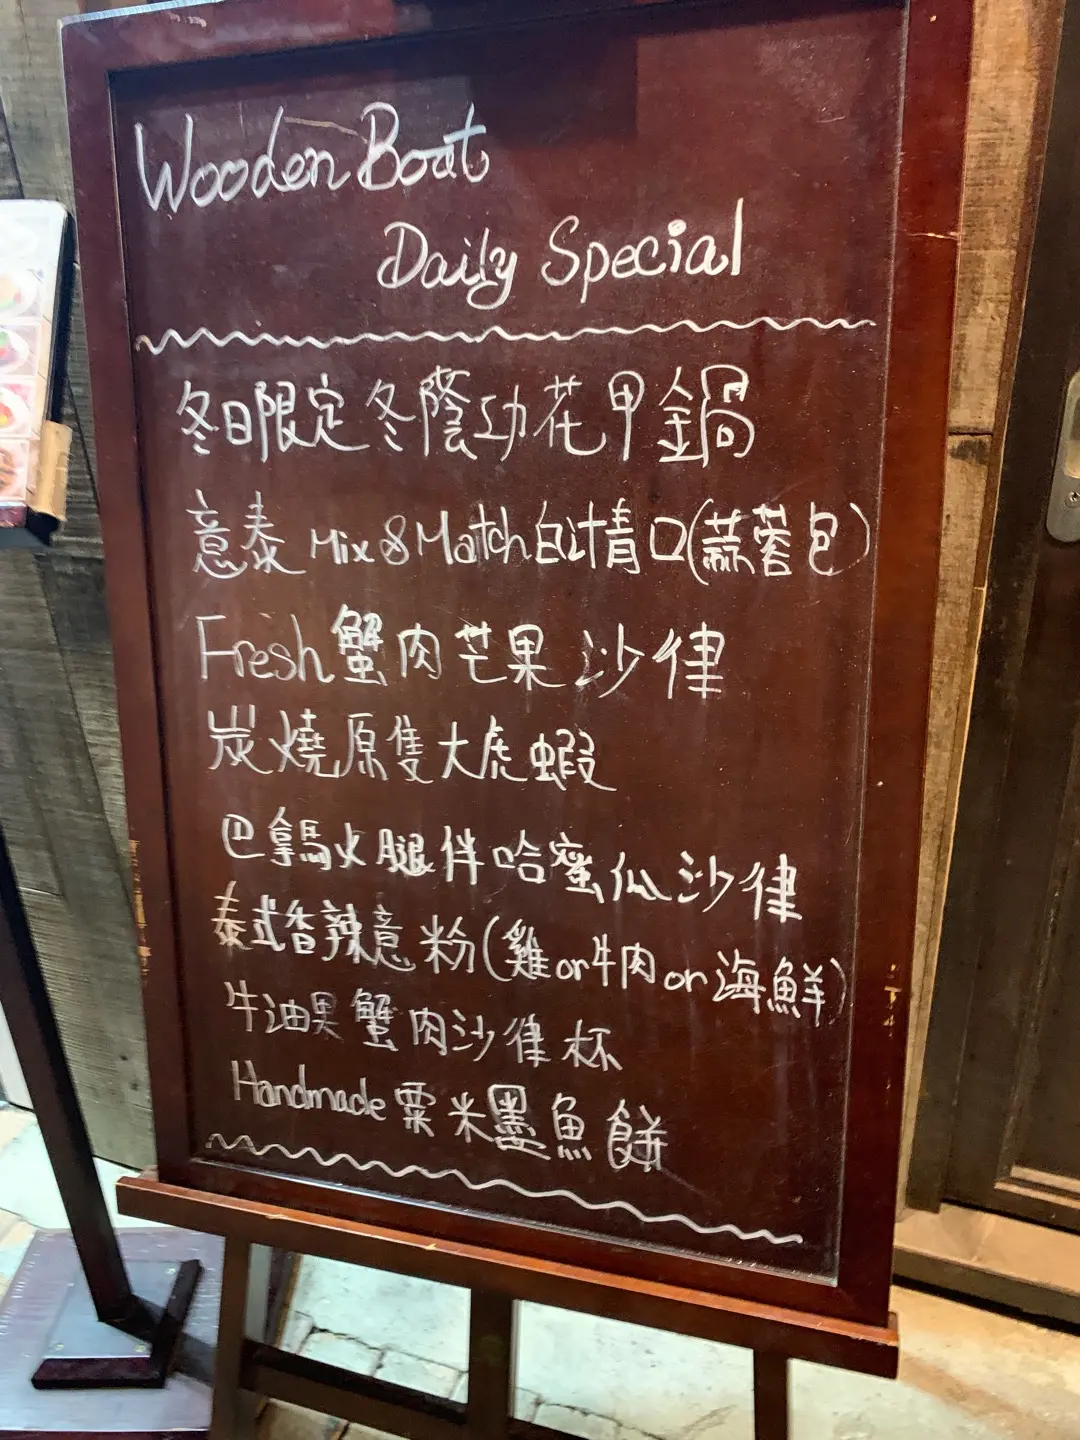 Wooden Boat
Daily Special
冬日限定冬蔭功花甲鍋
意泰 Mix & Match 白汁青口(蒜蓉包)
Fresh 蟹肉芒果沙律
炭燒原隻大虎蝦
巴拿馬火腿伴哈蜜瓜沙律
泰式香辣意粉(雞or牛肉or海鮮)
牛油果蟹肉沙律杯
Handmade 粟米墨魚餅